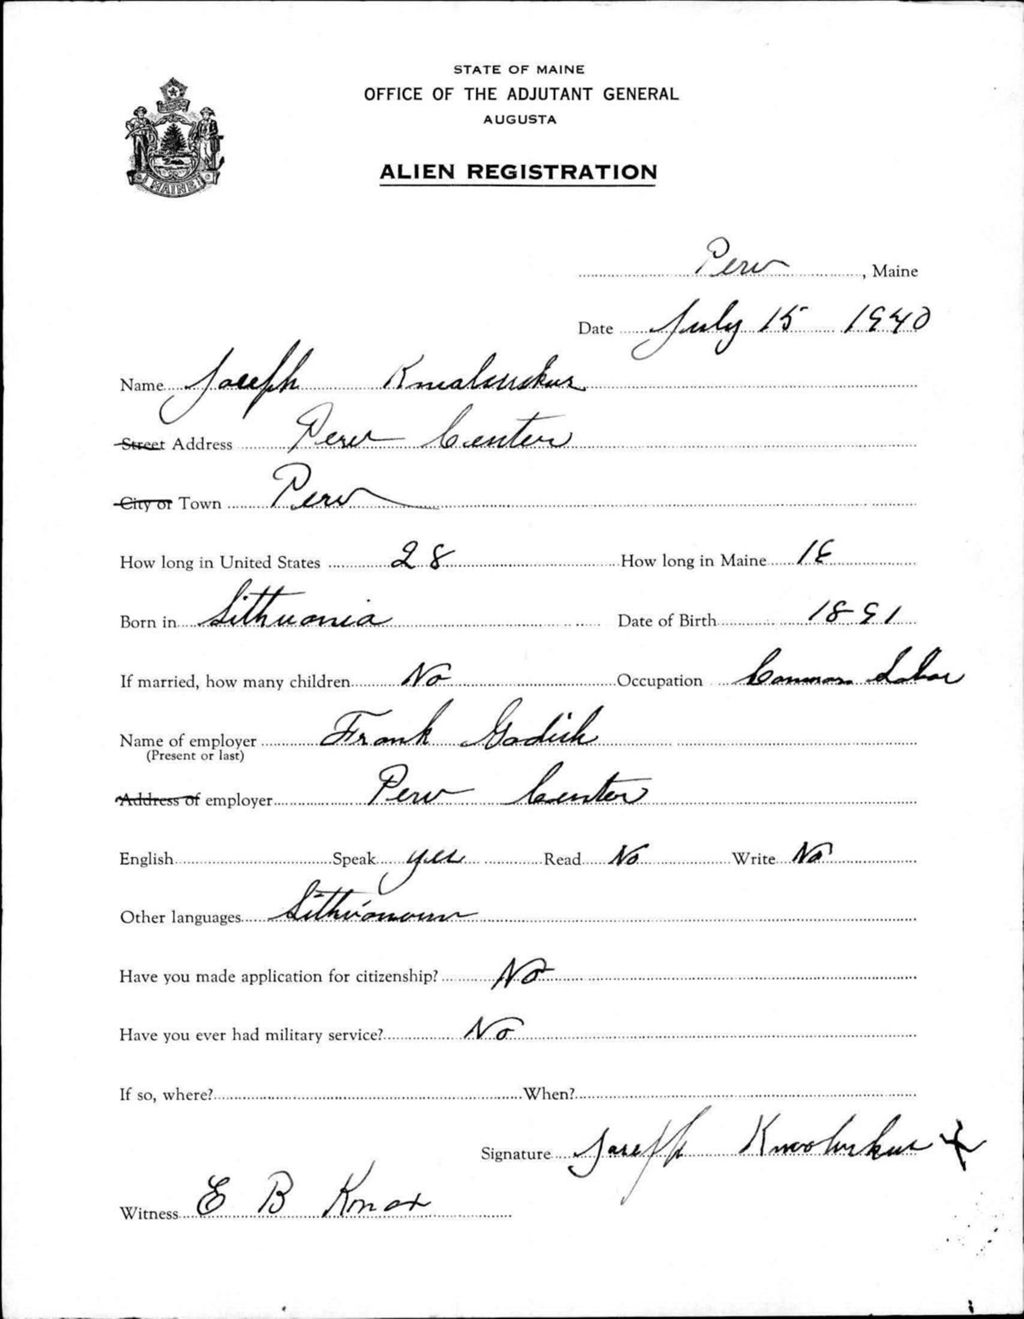 STATE OF MAINE
OFFICE OF THE ADJUTANT GENERAL
AUGUSTA
ALIEN REGISTRATION
MAINE
Peru, Maine
Date July 15 1940
Name Joseph
Street Address Peru Center
City or Town Peru
How long in United States 28 How long in Maine
Born in Lithuania Date of Birth 1891
If married, how many children No Occupation Common Labor
Name of employer Frank
(Present or last)
Address of employer Peru Center
English Speak yes Read No Write No
Other languages
Have you made application for citizenship? No
Have you ever had military service? No
If so, where? When?
Signature Joseph
Witness E B Knox